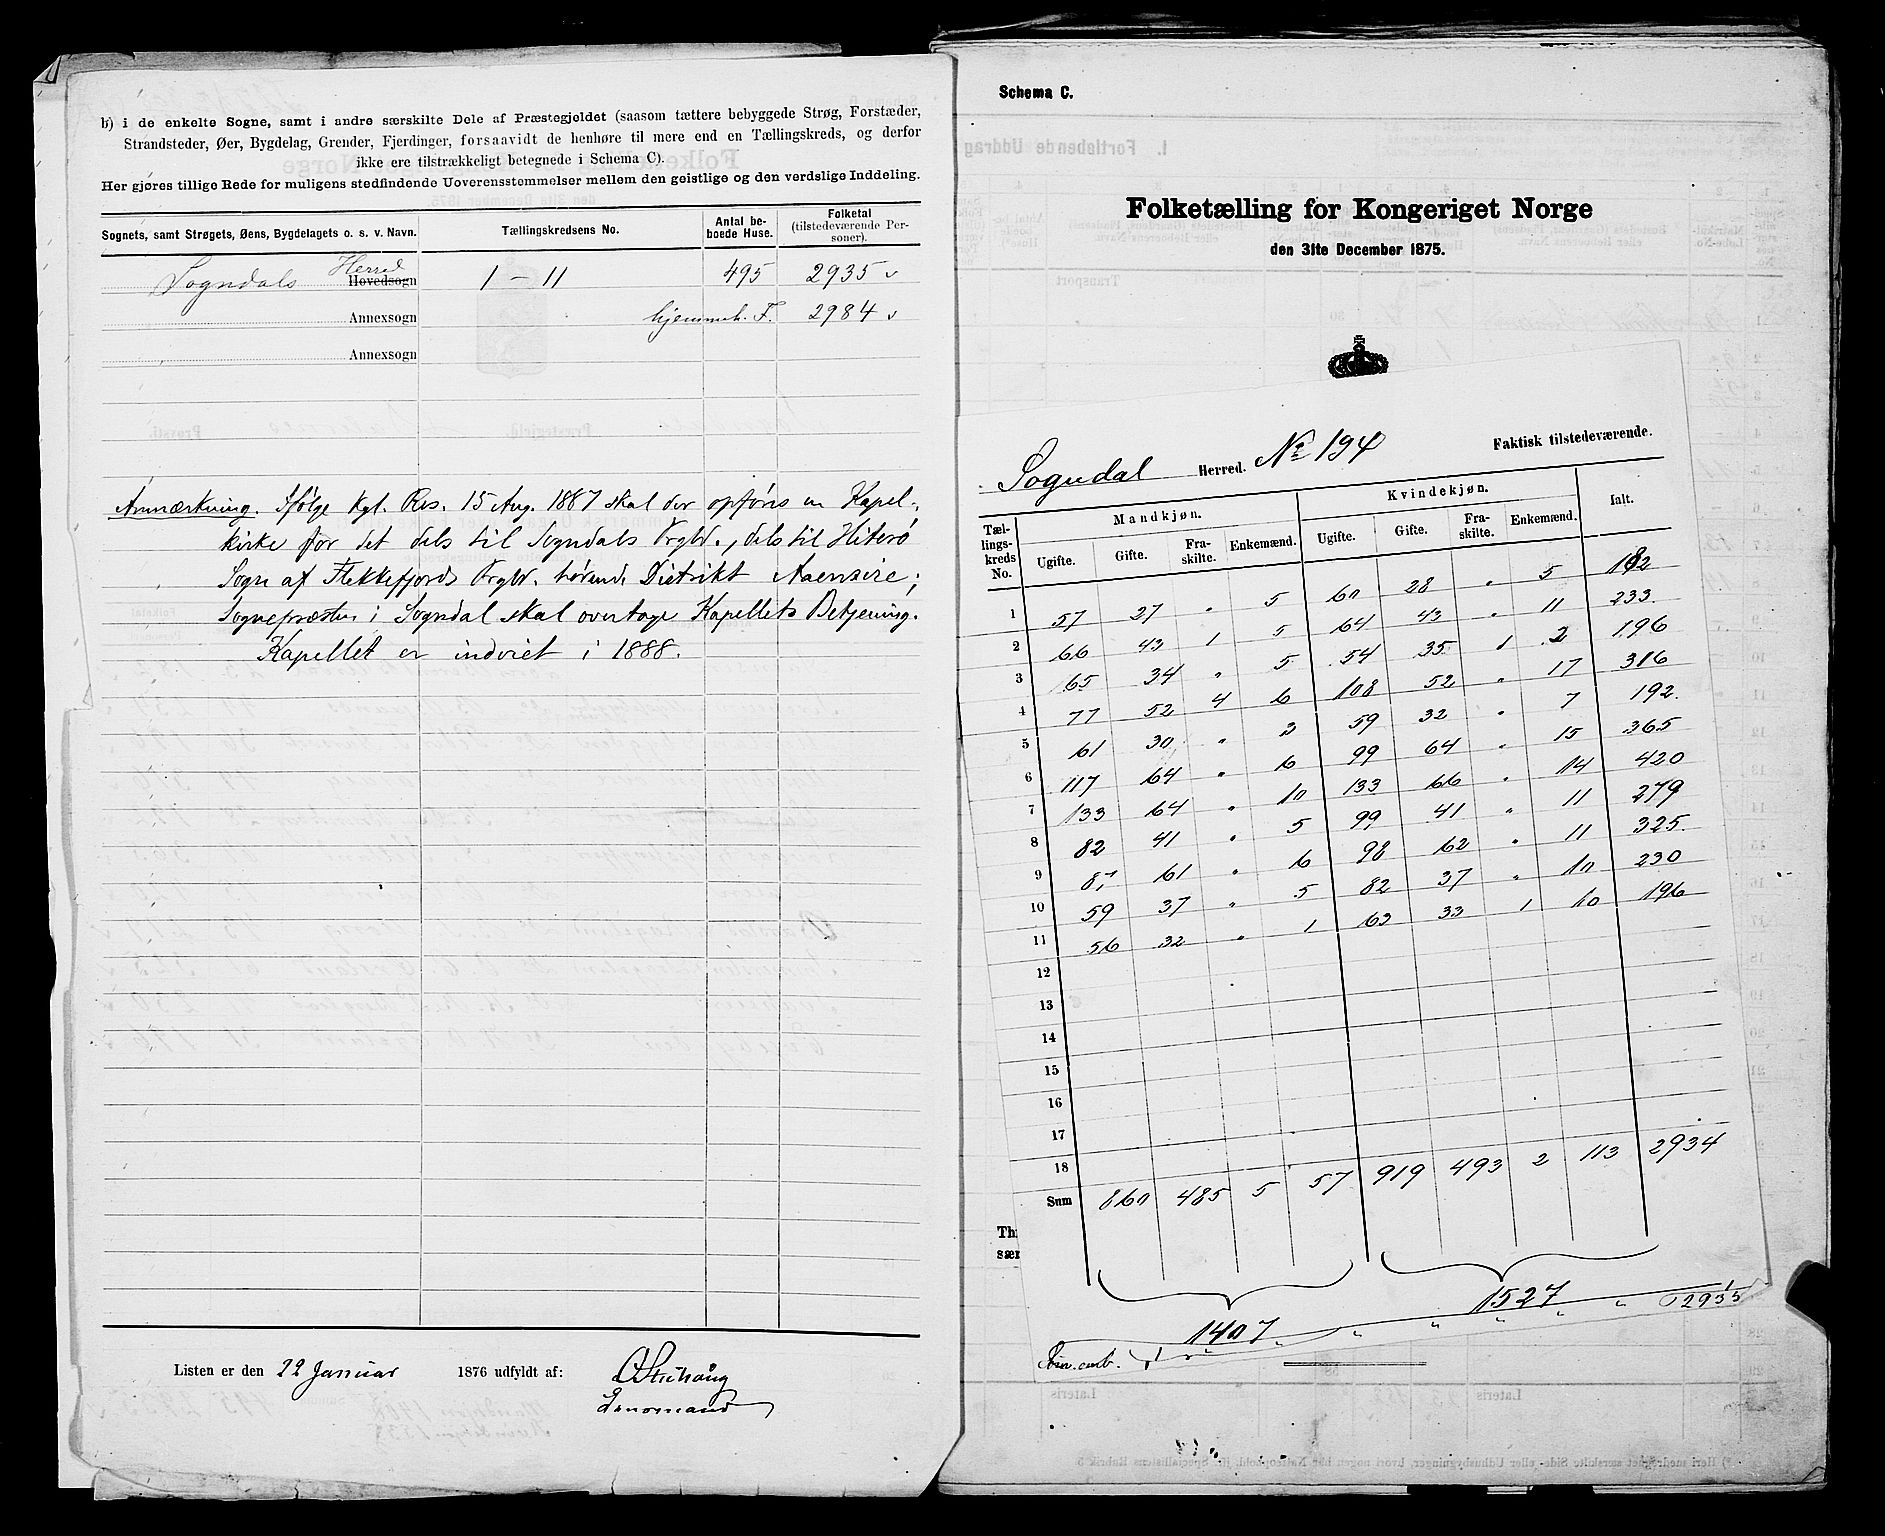 b) i de enkelte Sogne, samt i andre særskilte Dele af Præstegjeldet (saasom tættere bebyggede Strøg, Forstæder,
Strandsteder, Øer, Bygdelag, Grender, Fjerdinger, forsaavidt de henhøre til mere end en Tællingskreds, og derfor
ikke ere tilstrækkeligt betegnede i Schema C).
Her gjøres tillige Rede for muligens stedfindende Uoverensstemmelser mellem den geistlige og den verdslige Inddeling.
Sognets, samt Strøgets, Øens, Bygdelagets o. s. v. Navn. Tællingskredsens No. Antal be-boede Huse. Folketal (tilstedeværende Per-soner).
Sogndals Herred Hovedsogn 1 - 11 495 2935 v
Annexsogn hjemmeh. F. 2984 v
Annexsogn
Anmærkning. Ifølge Kgl. Res. 15 Aug. 1887 skal der opføres en Kapel-
kirke for det dels til Sogndals Prgld., dels til Hiterø
Sogn af Flekkefjords Prgld. hørende Distrikt Aaensire;
Sognepræsten i Sogndal skal overtage Kapellets Betjening.
Kapellet er indviet i 1888.
Listen er den 22 Januar 1876 udfyldt af:
Lensmand
Schema C.
Folketælling for Kongeriget Norge
den 31te December 1875.
Sogndal Herred. No 194 Faktisk tilstedeværende.
Tæl-lings-kreds No. Mandkjøn. Kvindekjøn. Ialt.
Ugifte. Gifte. Fra-skilte. Enkemænd. Ugifte. Gifte. Fra-skilte. Enkemænd.
1 57 27 " 5 60 28 " 5 182
2 66 43 1 5 64 43 " 11 233
3 65 34 " 5 54 35 1 2 196
4 77 52 4 6 108 52 " 17 316
5 61 30 " 3 59 32 " 7 192
6 117 64 " 6 99 64 " 15 365
7 133 64 " 10 133 66 " 14 420
8 82 41 " 5 99 41 " 11 279
9 87 61 " 6 98 62 " 11 325
10 59 37 " 5 82 37 " 10 230
11 56 32 " 1 63 33 1 10 196
12
13
14
15
16
17
18
Sum 860 485 5 57 919 493 2 113 2934
Th
sær
1407 1527
1 " " " " " " 1
2935